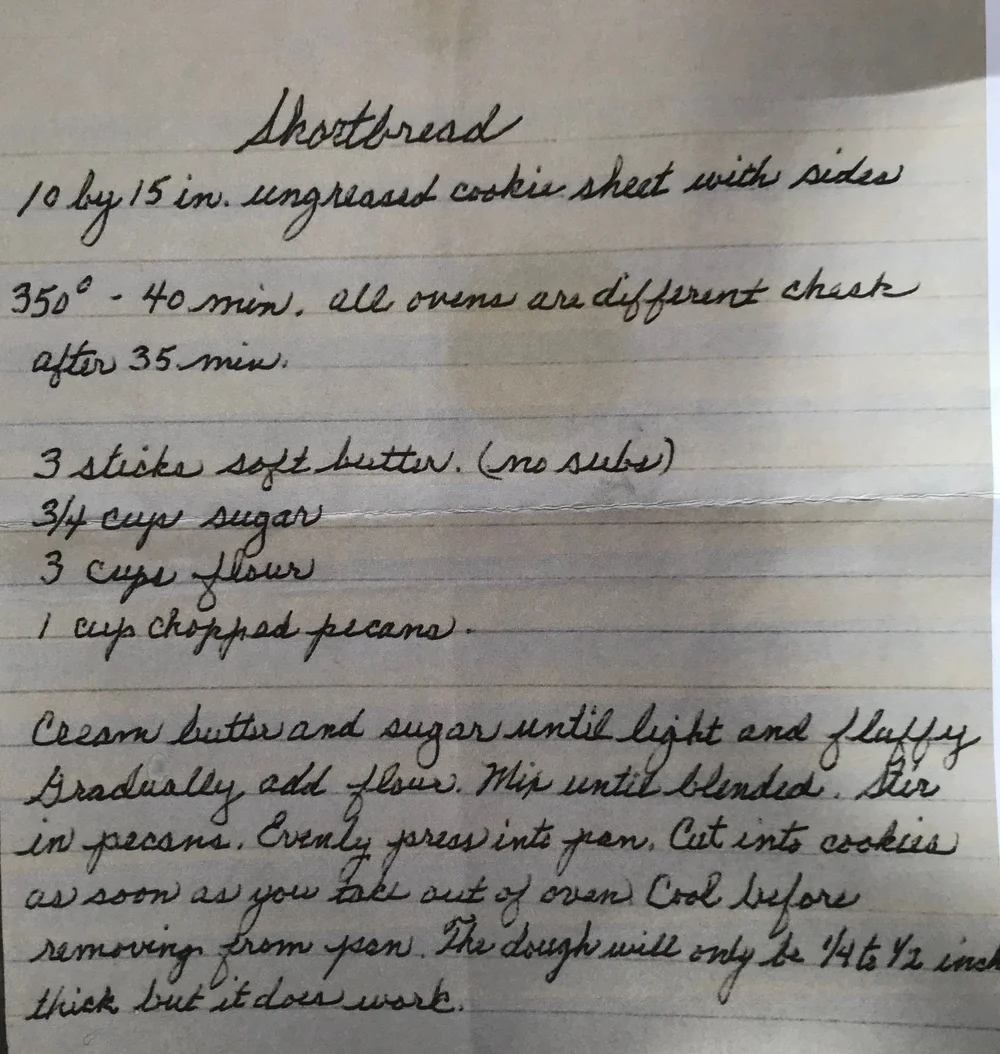 Shortbread
10 by 15 in. ungreased cookie sheet with sides
350° - 40 min. all ovens are different check
after 35 min.
3 sticks soft butter. (no subs)
3/4 cup sugar
3 cups flour
1 cup chopped pecans.
Cream butter and sugar until light and fluffy
Gradually add flour. Mix until blended. Stir
in pecans. Evenly press into pan. Cut into cookies
as soon as you take out of oven Cool before
removing from pan. The dough will only be 1/4 to 1/2 inch
thick but it does work.